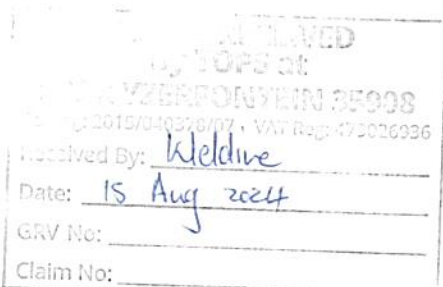 by TOPS at
2015/040378/07, VAT Reg: 473026936
Received By: Weldive
Date: 15 Aug 2024
GRV No:
Claim No: